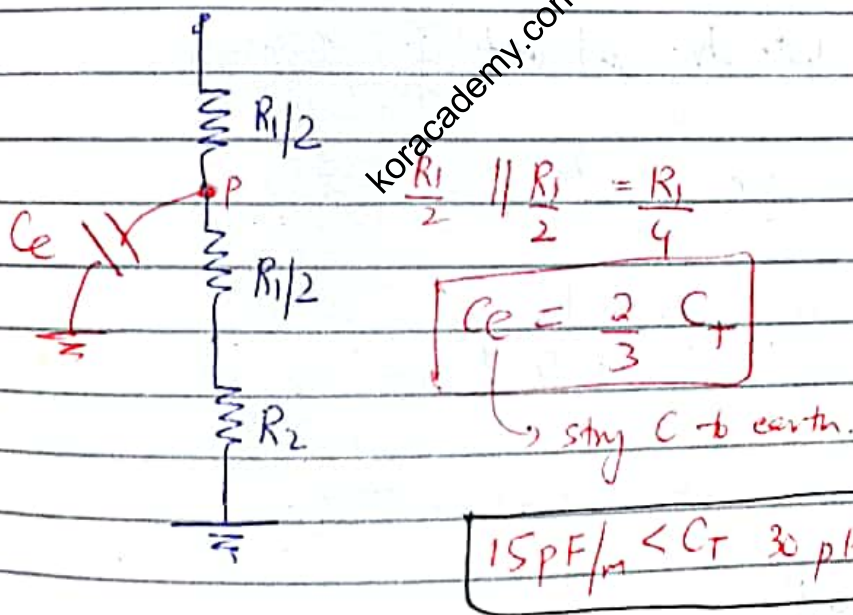 koracademy.com
R1/2
P
R1/2 || R1/2 = R1/4
Ce
R1/2
Ce = 2/3 CT
R2
stry C to earth.
15pF/m < CT 30 pF